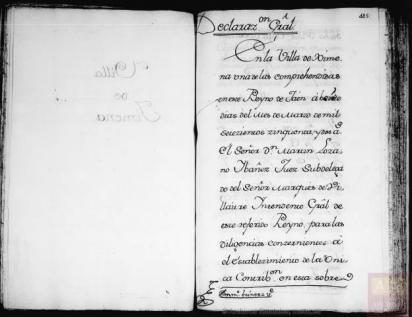 Declaraz.on Gral.
En la Villa de Xime
na una de las comprehendidas
en este Reyno de Jaen á
dias del Mes de Marzo de mil
setezientos zinquenta y tres a.s
El Señor D.n Martin Loza
no Ibañez Juez Subdelega
do del Señor Marques de Vi
llaitre Intendente Gral de
este referido Reyno, para las
diligencias conzernientes á
el establecimiento de la Uni
ca Contribz.on en esta sobre
Villa
de
Ximena